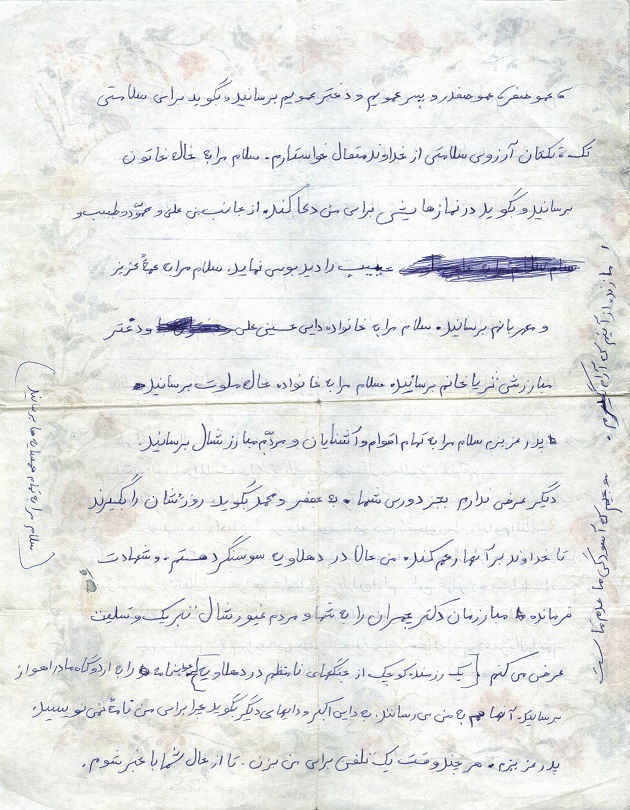 عمو صفر و عمو صفدر و پسر عمویم و دختر عمویم برسانید و بگوید برای سلامتی
تک تکتان آرزوی سلامتی از خداوند متعال خواستارم. سلام مرا به خاله خاتون
برسانید و بگوید در نمازهایش برای من دعا کند. از جانب من علی و محمود و طیب و
حبیب را دیده بوسی نماید. سلام مرا به عمه عزیز
و مهربانم برسانید. سلام مرا به خانواده دایی حسینی علی و دختر
مبارزش ثریا خانم برسانید. سلام مرا به خانواده خاله سلوت برسانید.
پدر عزیزم سلام مرا به تمام اقوام و آشنایان و مردم مبارز شال برسانید.
دیگر عرضی ندارم بجز دوری شما. به جعفر و محمد بگوید روزشان را بگیرند
تا خداوند بر آنها رحم کند. من حالا در دهلاویه سوسنگرد هستم. و شهادت
فرمانده مبارزمان دکتر چمران را به شما و مردم غیور شال تبریک و تسلیت
عرض می کنم [یک رزمنده کوچک از جنگهای نامنظم در دهلاویه] نامه را به اردوگاه ما در اهواز
برسانید. آنها هم به من می رسانند. به دایی اکبر و دایهای دیگر بگوید چرا برای من نامه نمی نویسید.
پدر عزیزم. هر چند وقت یک تلفن برای من بزن. تا از حال شما با خبر شوم.
(سلام مرا به تمام همسایه ها برسانید)
ما زنده از آنیم که آرام نگیریم.
موجیم که آسودگی ما عدم ماست